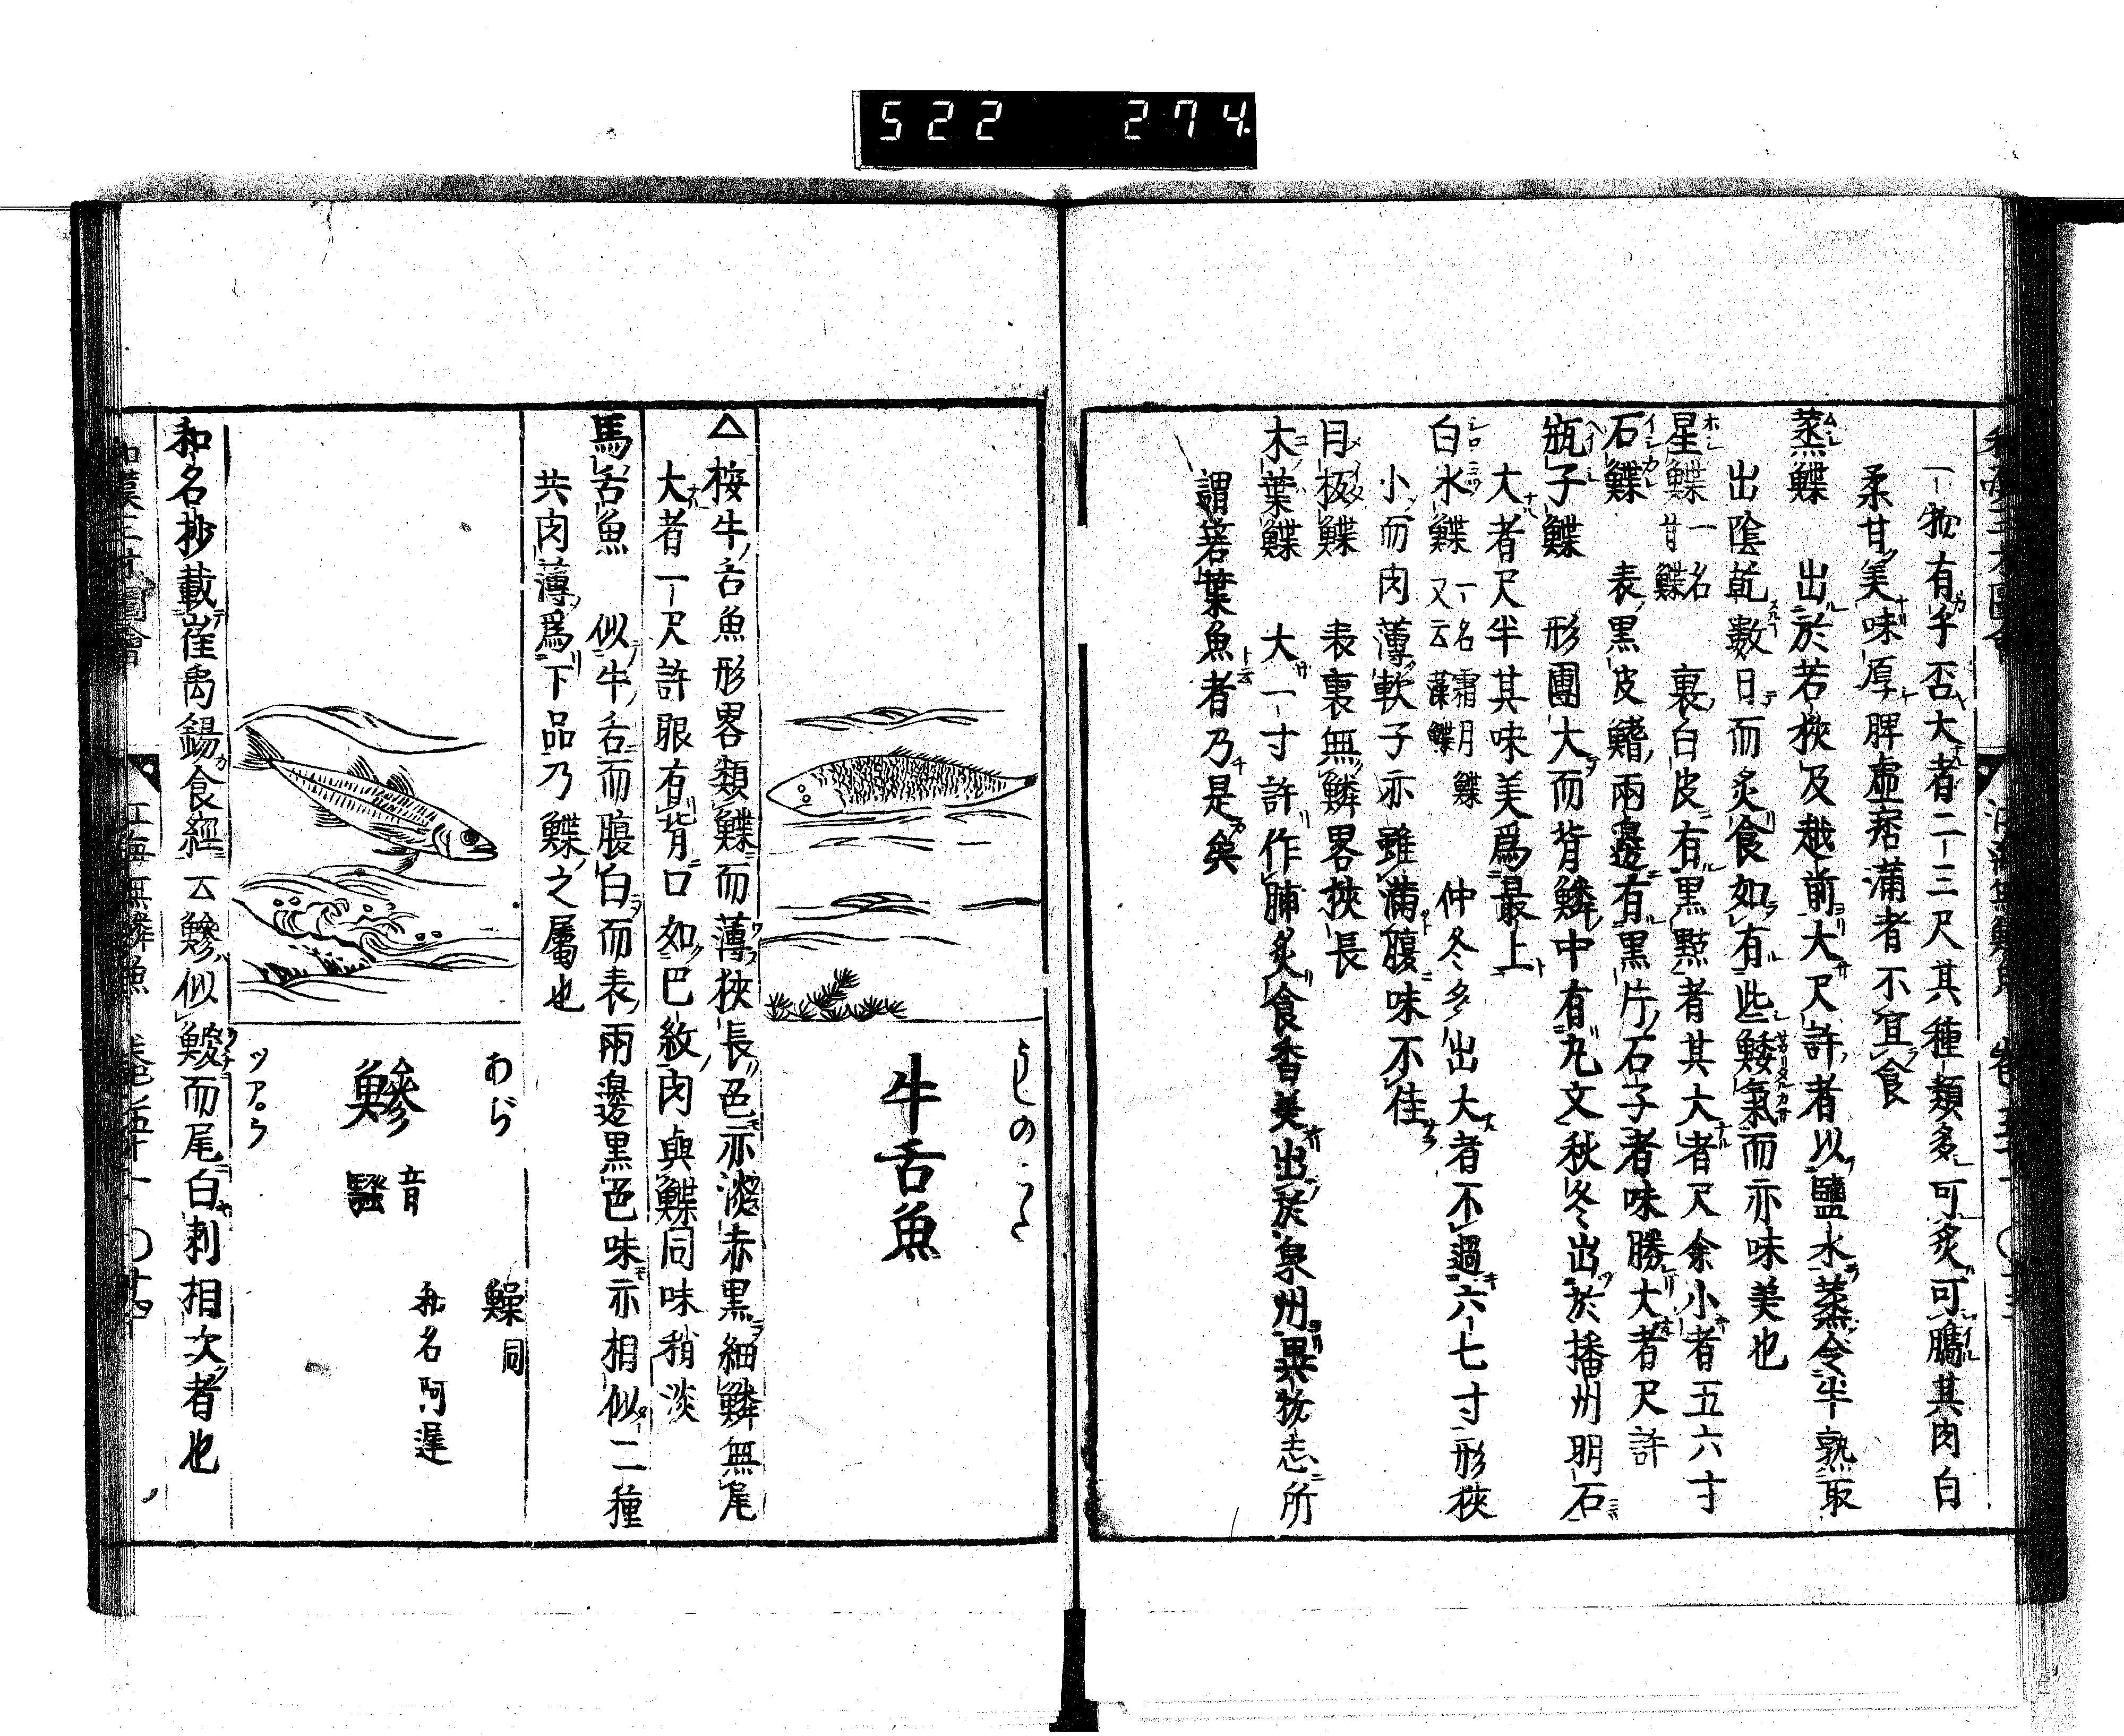 522 274
一物有乎否大者二三尺其種類多可炙可臇其肉白
柔甘美味厚脾虛痞滿者不宜食
蒸鰈 出於若狹及越前大尺許者以鹽水蒸令半熟取
出陰乾數日而炙食如有些鯘氣而亦味美也
星鰈 一名甘鰈 裏白皮有黒㸃者其大者尺余小者五六寸
石鰈 表黒皮鰭兩邊有黒片石子者味勝大者尺許
瓶子鰈 形團大而背鱗中有丸文秋冬出於播州明石
大者尺半其味美爲最上
白水鰈 一名霜月鰈 又云藻鰈 仲冬多出大者不過六七寸形狹
小而肉薄軟子亦雖滿腹味不佳
目板鰈 表裏無鱗畧狹長
木葉鰈 大一寸許作脯炙食香美出於泉州異物志所
謂箬葉魚者乃是矣
うしのした
牛舌魚
△按牛舌魚形畧類鰈而薄狹長色亦淡赤黒細鱗無尾
大者一尺許眼有背口如巴紋肉與鰈同味稍淡
馬舌魚 似牛舌而腹白而表兩邊黒色味亦相似二種
共肉薄爲下品乃鰈之屬也
あぢ
鰺 音騷
ツアウ
鱢同
和名阿遲
和名抄載崔禹錫食經云鰺似鯼而尾白刺相次者也
和漢三才圖會 江海無鱗魚 卷五十一 〇十四